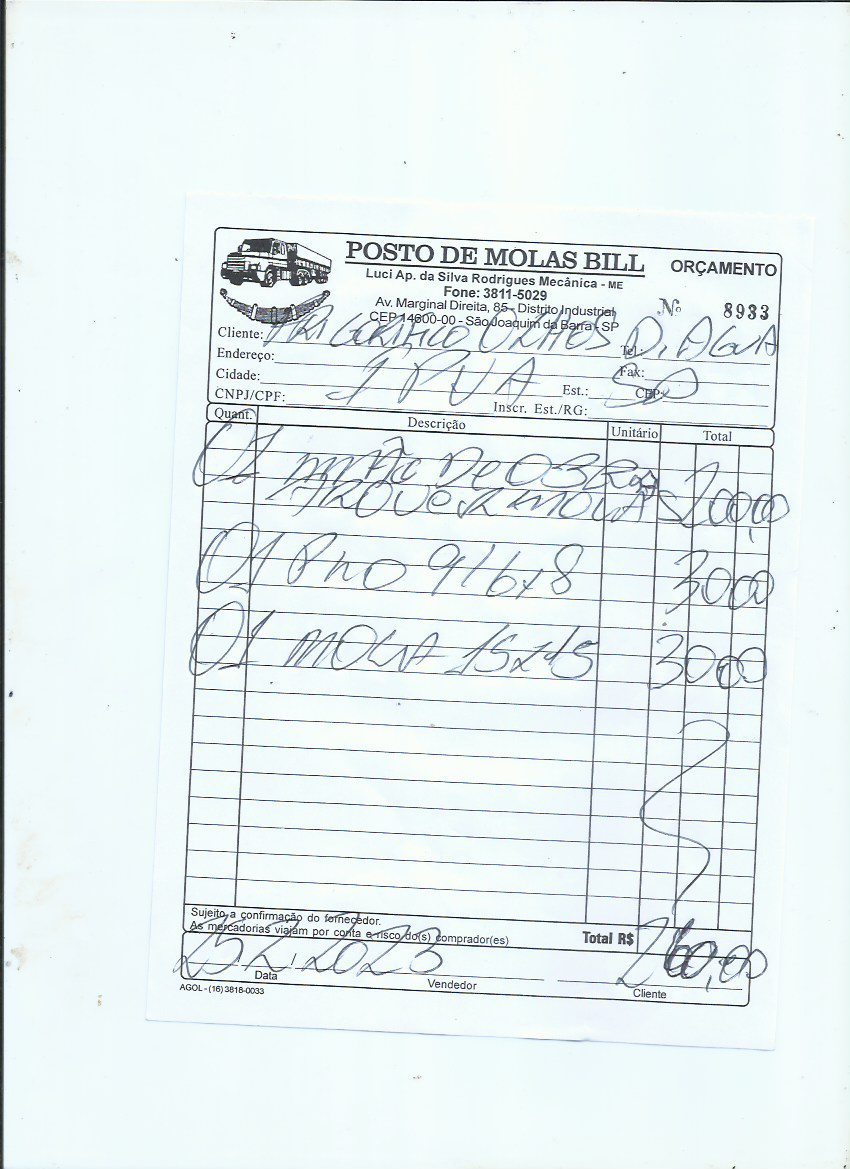 POSTO DE MOLAS BILL
ORÇAMENTO
Luci Ap. da Silva Rodrigues Mecânica - ME
Fone: 3811-5029
Av. Marginal Direita, 85 - Distrito Industrial
CEP 14600-00 - São Joaquim da Barra - SP
Nº 8933
Cliente: FRIGORIFICO OLHOS D, AGUA
Tel.:
Endereço:
Fax:
Cidade: IPUA Est.: SP CEP:
CNPJ/CPF: Inscr. Est./RG:
Quant. Descrição Unitário Total
01 MÃO DE OBRA 200,00
MOLAS
01 PINO 9/16x8 30 00
01 MOLA 30 00
Sujeito a confirmação do fornecedor.
As mercadorias viajam por conta e risco do(s) comprador(es)
Total R$ 260,00
25 2 2023
Data Vendedor Cliente
AGOL - (16) 3818-0033